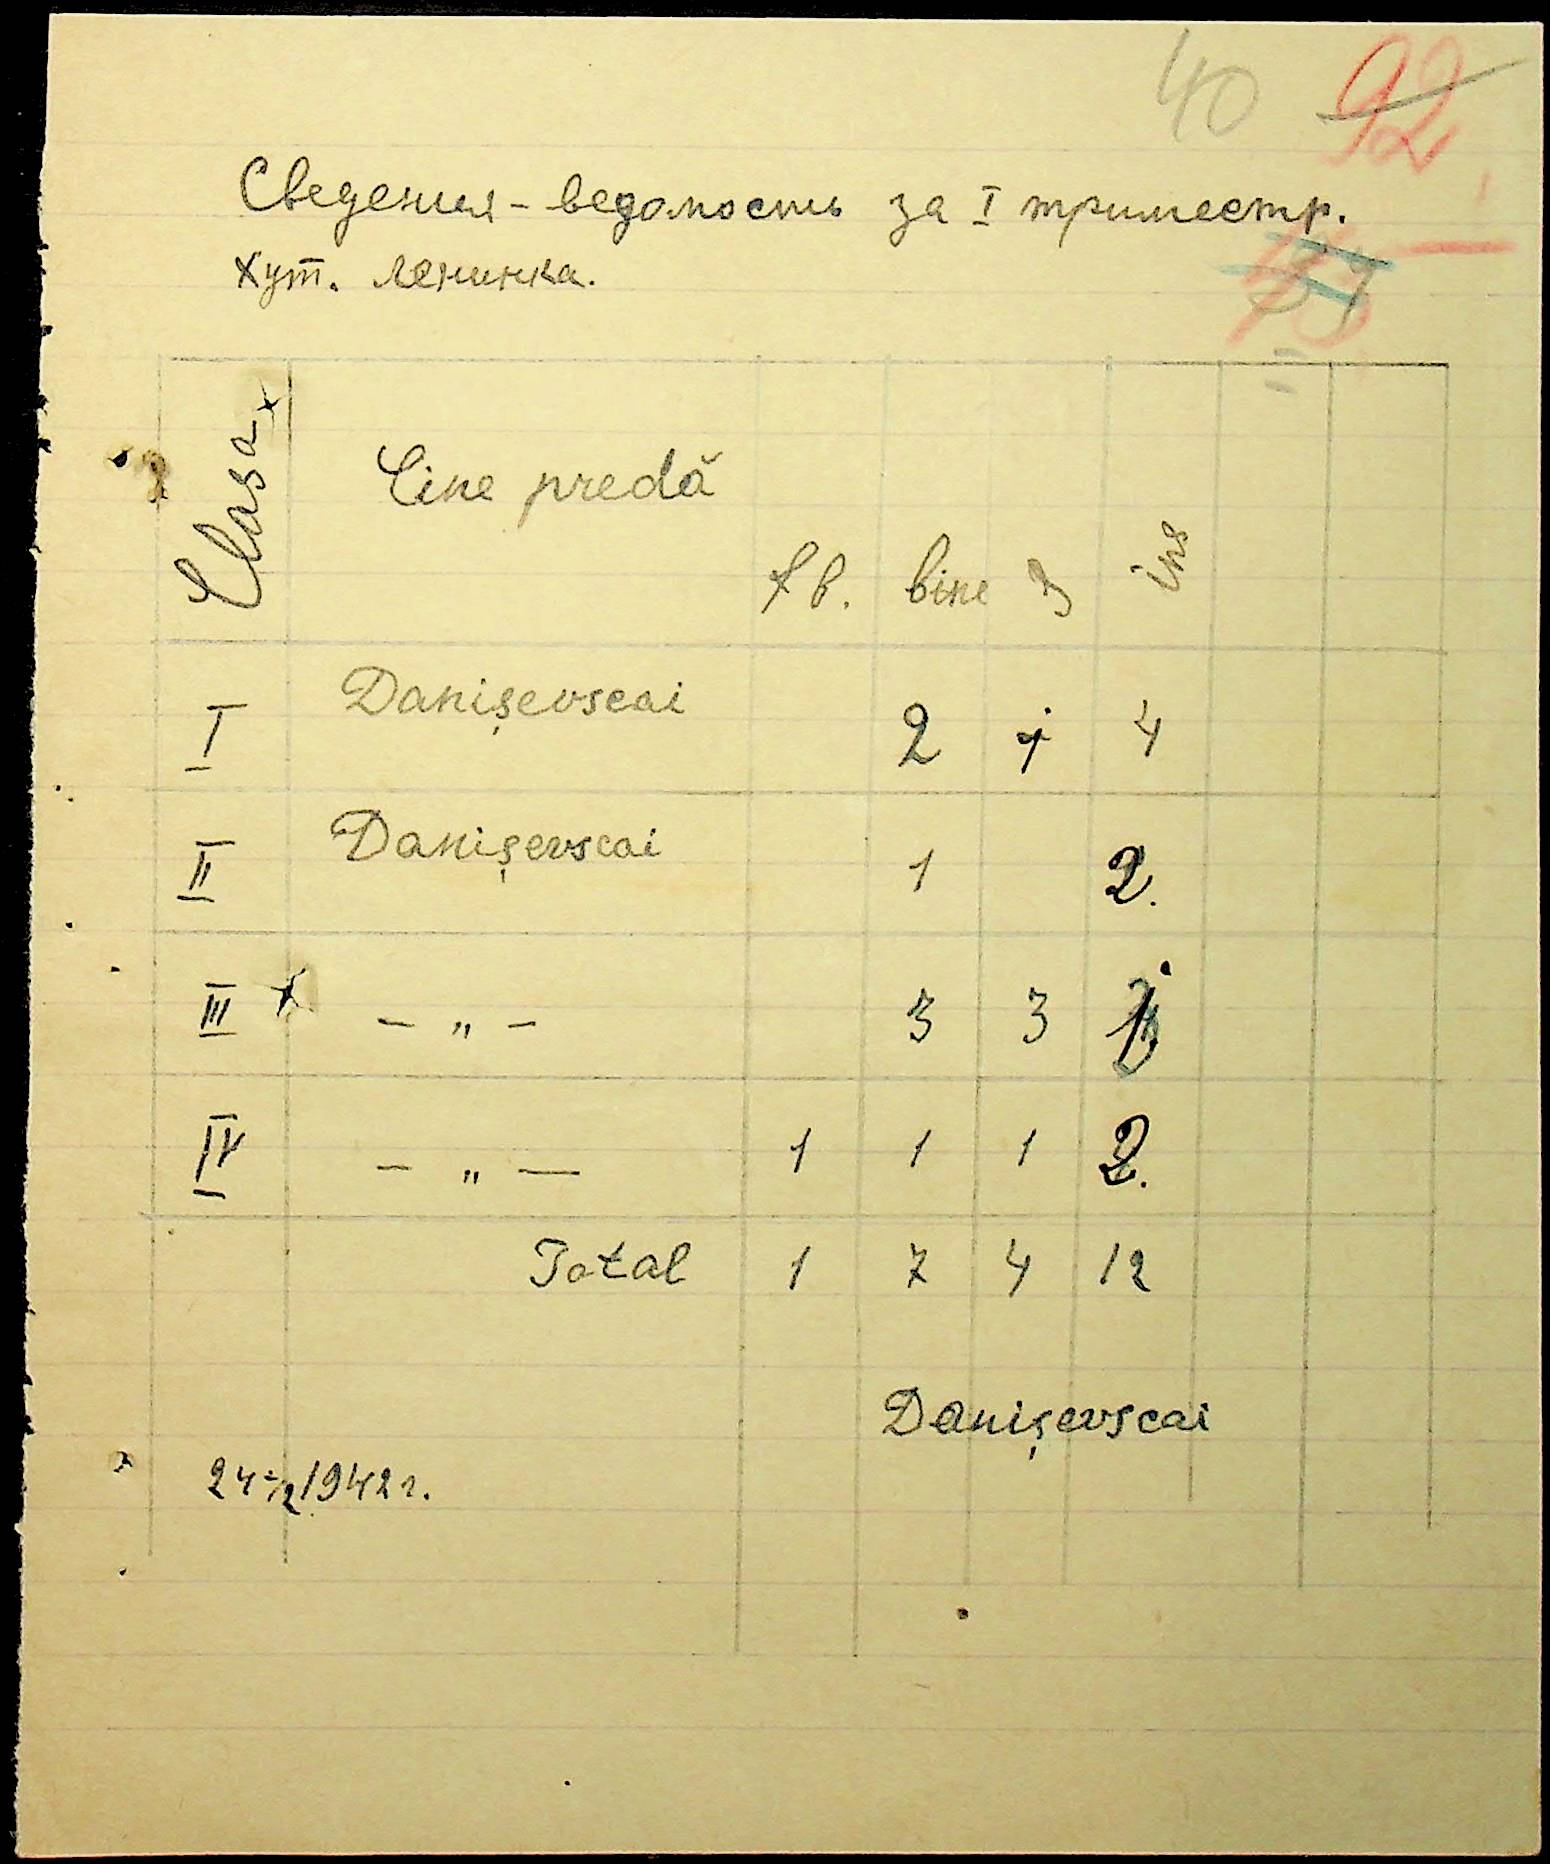 40 92
Сведения-ведомость за I триместр.
хут. Ленинка.
Clasa Cine predă fb. bine 3 ins
I Danișevscai 2 4
II Danișevscai 1 2.
III - „ - 3 3
IV - „ - 1 1 1 2.
Total 1 7 4 12
Danișevscai
1942 г.